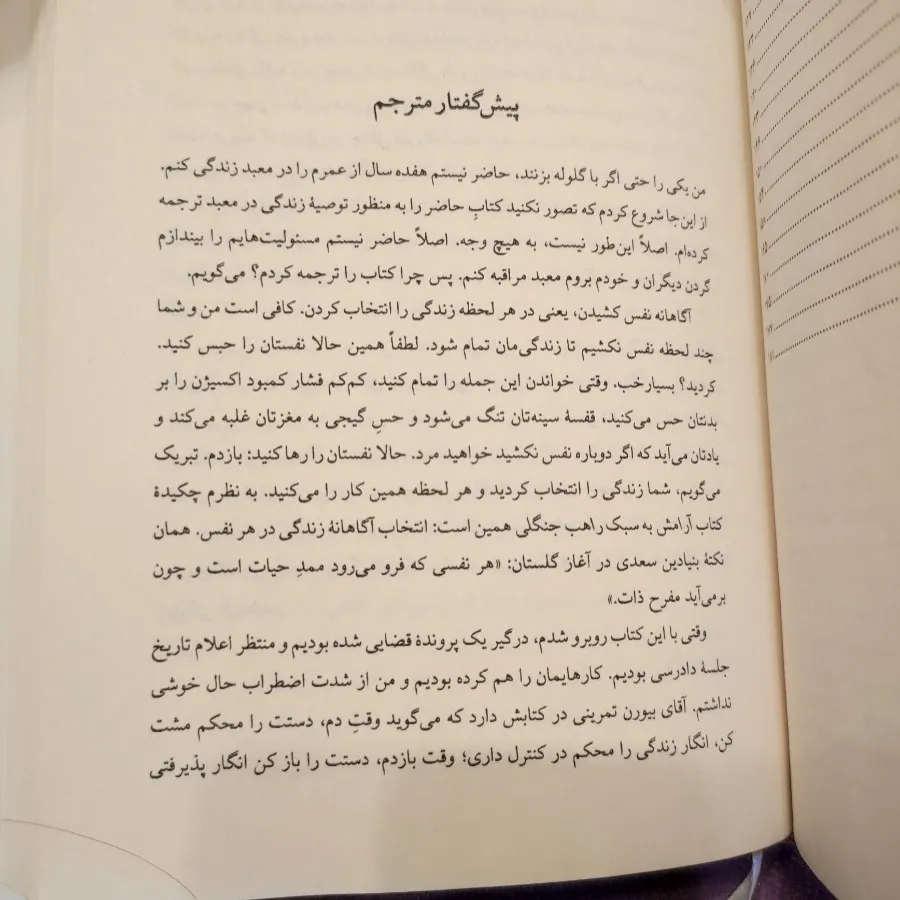 پیش‌گفتار مترجم
من یکی را حتی اگر با گلوله بزنند، حاضر نیستم هفده سال از عمرم را در معبد زندگی کنم.
از این‌جا شروع کردم که تصور نکنید کتابِ حاضر را به منظور توصیهٔ زندگی در معبد ترجمه
کرده‌ام. اصلاً این‌طور نیست، به هیچ وجه. اصلاً حاضر نیستم مسئولیت‌هایم را بیندازم
گردن دیگران و خودم بروم معبد مراقبه کنم. پس چرا کتاب را ترجمه کردم؟ می‌گویم.
آگاهانه نفس کشیدن، یعنی در هر لحظه زندگی را انتخاب کردن. کافی است من و شما
چند لحظه نفس نکشیم تا زندگی‌مان تمام شود. لطفاً همین حالا نفستان را حبس کنید.
کردید؟ بسیارخب. وقتی خواندن این جمله را تمام کنید، کم‌کم فشار کمبود اکسیژن را بر
بدنتان حس می‌کنید، قفسهٔ سینه‌تان تنگ می‌شود و حسِ گیجی به مغزتان غلبه می‌کند و
یادتان می‌آید که اگر دوباره نفس نکشید خواهید مرد. حالا نفستان را رها کنید: بازدم. تبریک
می‌گویم، شما زندگی را انتخاب کردید و هر لحظه همین کار را می‌کنید. به نظرم چکیدهٔ
کتاب آرامش به سبک راهب جنگلی همین است: انتخاب آگاهانهٔ زندگی در هر نفس. همان
نکتهٔ بنیادین سعدی در آغاز گلستان: «هر نفسی که فرو می‌رود ممدِ حیات است و چون
برمی‌آید مفرح ذات.»
وقتی با این کتاب روبرو شدم، درگیر یک پروندهٔ قضایی شده بودیم و منتظر اعلام تاریخ
جلسهٔ دادرسی بودیم. کارهایمان را هم کرده بودیم و من از شدت اضطراب حال خوشی
نداشتم. آقای بیورن تمرینی در کتابش دارد که می‌گوید وقتِ دم، دستت را محکم مشت
کن، انگار زندگی را محکم در کنترل داری؛ وقت بازدم، دستت را باز کن انگار پذیرفتی